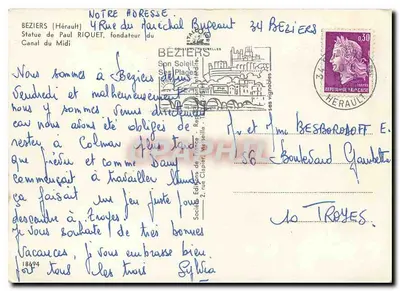 NOTRE ADRESSE.
BEZIERS (Hérault) 4 Rue du Maréchal Bugeaut 34 BEZIERS
Statue de Paul RIQUET, fondateur du
Canal du Midi
BEZIERS
Son Soleil
Ses Plages
Ses vignobles
0,30
REPUBLIQUE FRANCAISE
HERAULT
Nous sommes à Béziers depuis
Vendredi et malheureusement
nous y sommes venus directement
car nous avons été obligés de
rester à Colmar plus tard
que prévu et comme Dany
commençait à travailler lundi
ça faisait un peu juste pour
descendre à Troyes.
Je vous souhaite de très bonnes
Vacances, je vous embrasse bien
fort tous les trois Sylvia
18494
Mr et Mme BESBORODOFF E.
56 Boulevard Gambetta
10 TROYES.